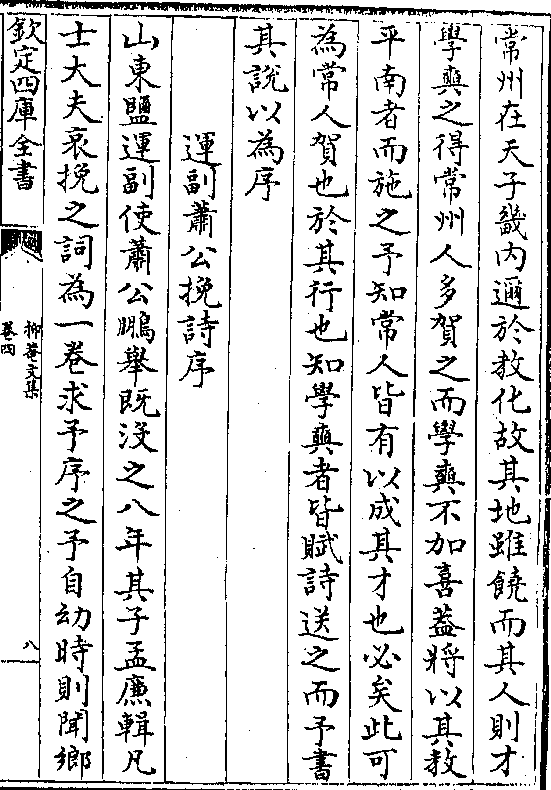 常州在天子畿内邇於教化故其地雖饒而其人則才
學奭之得常州人多賀之而學奭不加喜蓋將以其教
平南者而施之予知常人皆有以成其才也必矣此可
為常人賀也於其行也知學奭者皆賦詩送之而予書
其說以為序
運副蕭公挽詩序
山東鹽運副使蕭公鵬舉既沒之八年其子孟廉輯凡
士大夫哀挽之詞為一卷求予序之予自幼時則聞鄉
欽定四庫全書
抑菴文集
卷四
八